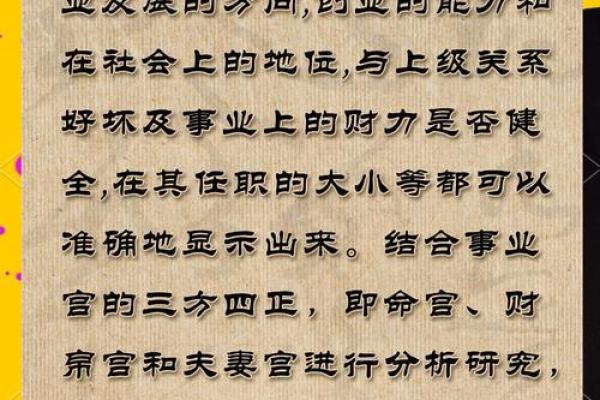 业及发展的方向,创业的能力和
在社会上的地位,与上级关系
好坏及事业上的财力是否健
全,在其任职的大小等都可以
准确地显示出来。结合事业
宫的三方四正，即命宫、财
帛宫和夫妻宫进行分析研究，